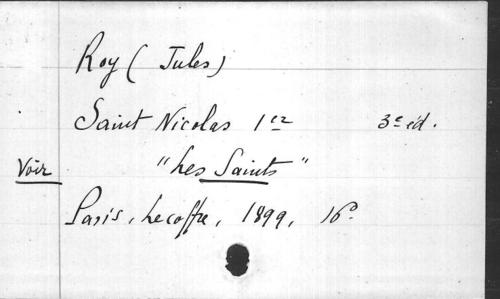 Roy (Jules)
Saint Nicolas 1er 3e éd.
Voir "Les Saints"
Paris, Lecoffre, 1899, 16o.